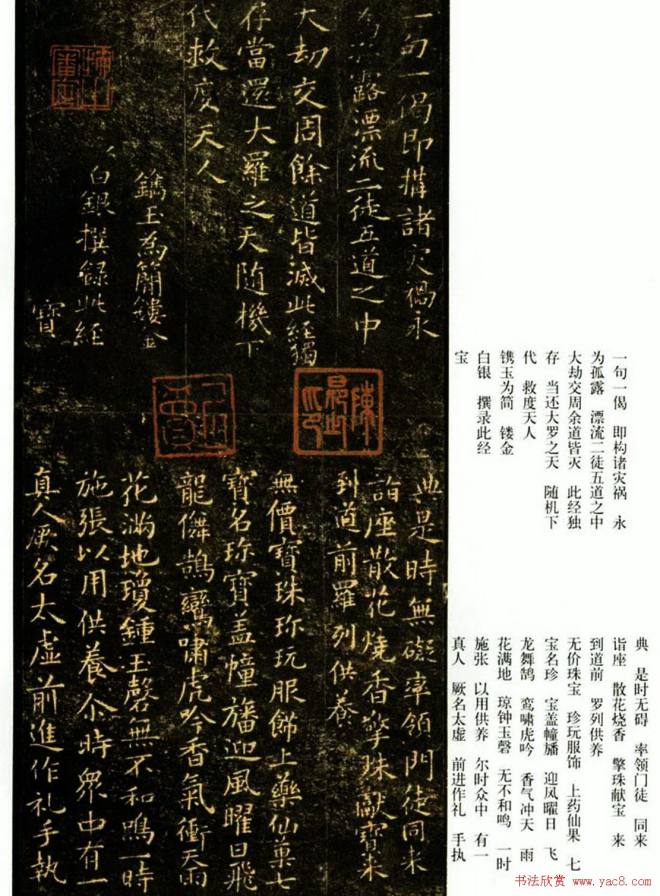 一句一偈即構諸灾禍永
為孤露漂流二徒五道之中
大劫交周餘道皆滅此經獨
存當還大羅之天隨機下
代救度天人
鐫玉為簡鏤金
白銀撰録此經
寶
典是時無礙率領門徒同来
詣座散花燒香擎珠獻寶来
到道前羅列供養
無價寶珠珎玩服飾上藥仙菓七
寶名珎寶盖幢旛迎風曜日飛
龍儛鵠鸞嘯虎吟香氣衝天雨
花滿地瓊鍾玉磬無不和鳴一時
施張以用供養尒時衆中有一
真人厥名太虚前進作礼手執
一句一偈 即构诸灾祸 永
为孤露 漂流二徒五道之中
大劫交周余道皆灭 此经独
存 当还大罗之天 随机下
代 救度天人
镌玉为简 镂金
白银 撰录此经
宝
典 是时无碍 率领门徒 同来
诣座 散花烧香 擎珠献宝 来
到道前 罗列供养
无价珠宝 珍玩服饰 上药仙果 七
宝名珍 宝盖幢旛 迎风曜日 飞
龙舞鹄 鸾啸虎吟 香气冲天 雨
花满地 琼钟玉磬 无不和鸣 一时
施张 以用供养 尔时众中 有一
真人 厥名太虚 前进作礼 手执
书法欣赏 www.yac8.com